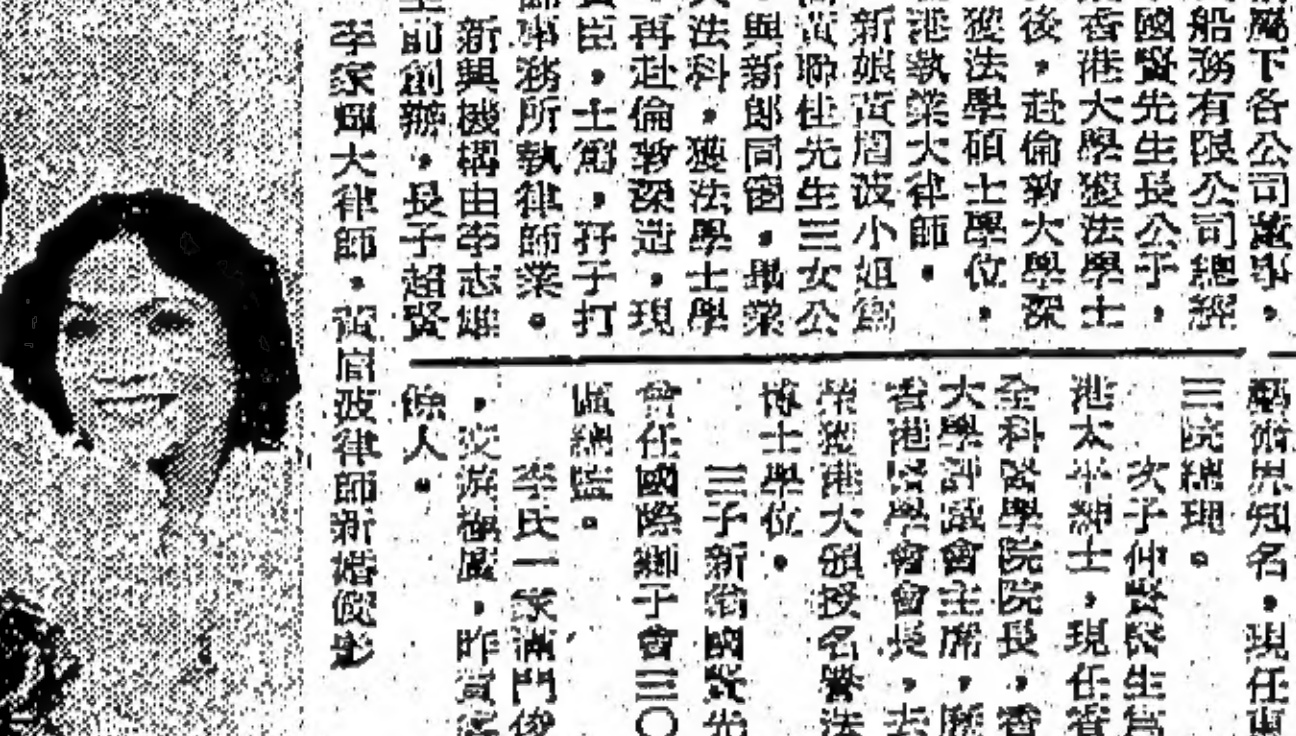 屬下各公司董事，
船務有限公司總經
國賢先生長公子，
香港大學獲法學士
後，赴倫敦大學深
獲法學碩士學位，
港執業大律師。
新娘黃眉波小姐為
黃聯仕先生三女公
與新郎同窗，畢業
法科，獲法學士學
再赴倫敦深造，現
臣，士篤，孖子打
師事務所執律師業。
新興機構由李志雄
前創辦，長子超賢
界知名，現任東
三院總理。
次子仲賢醫生為
港太平紳士，現任香
全科醫學院院長，香
大學評議會主席，歷
香港醫學會會長，去
榮獲港大頒授名譽法
博士學位。
三子新
國賢先
曾任國際獅子會三〇
總監。
李氏一家滿門俊
，交游極廣，昨賓客
餘人。
李家輝大律師，黃眉波律師新婚儷影